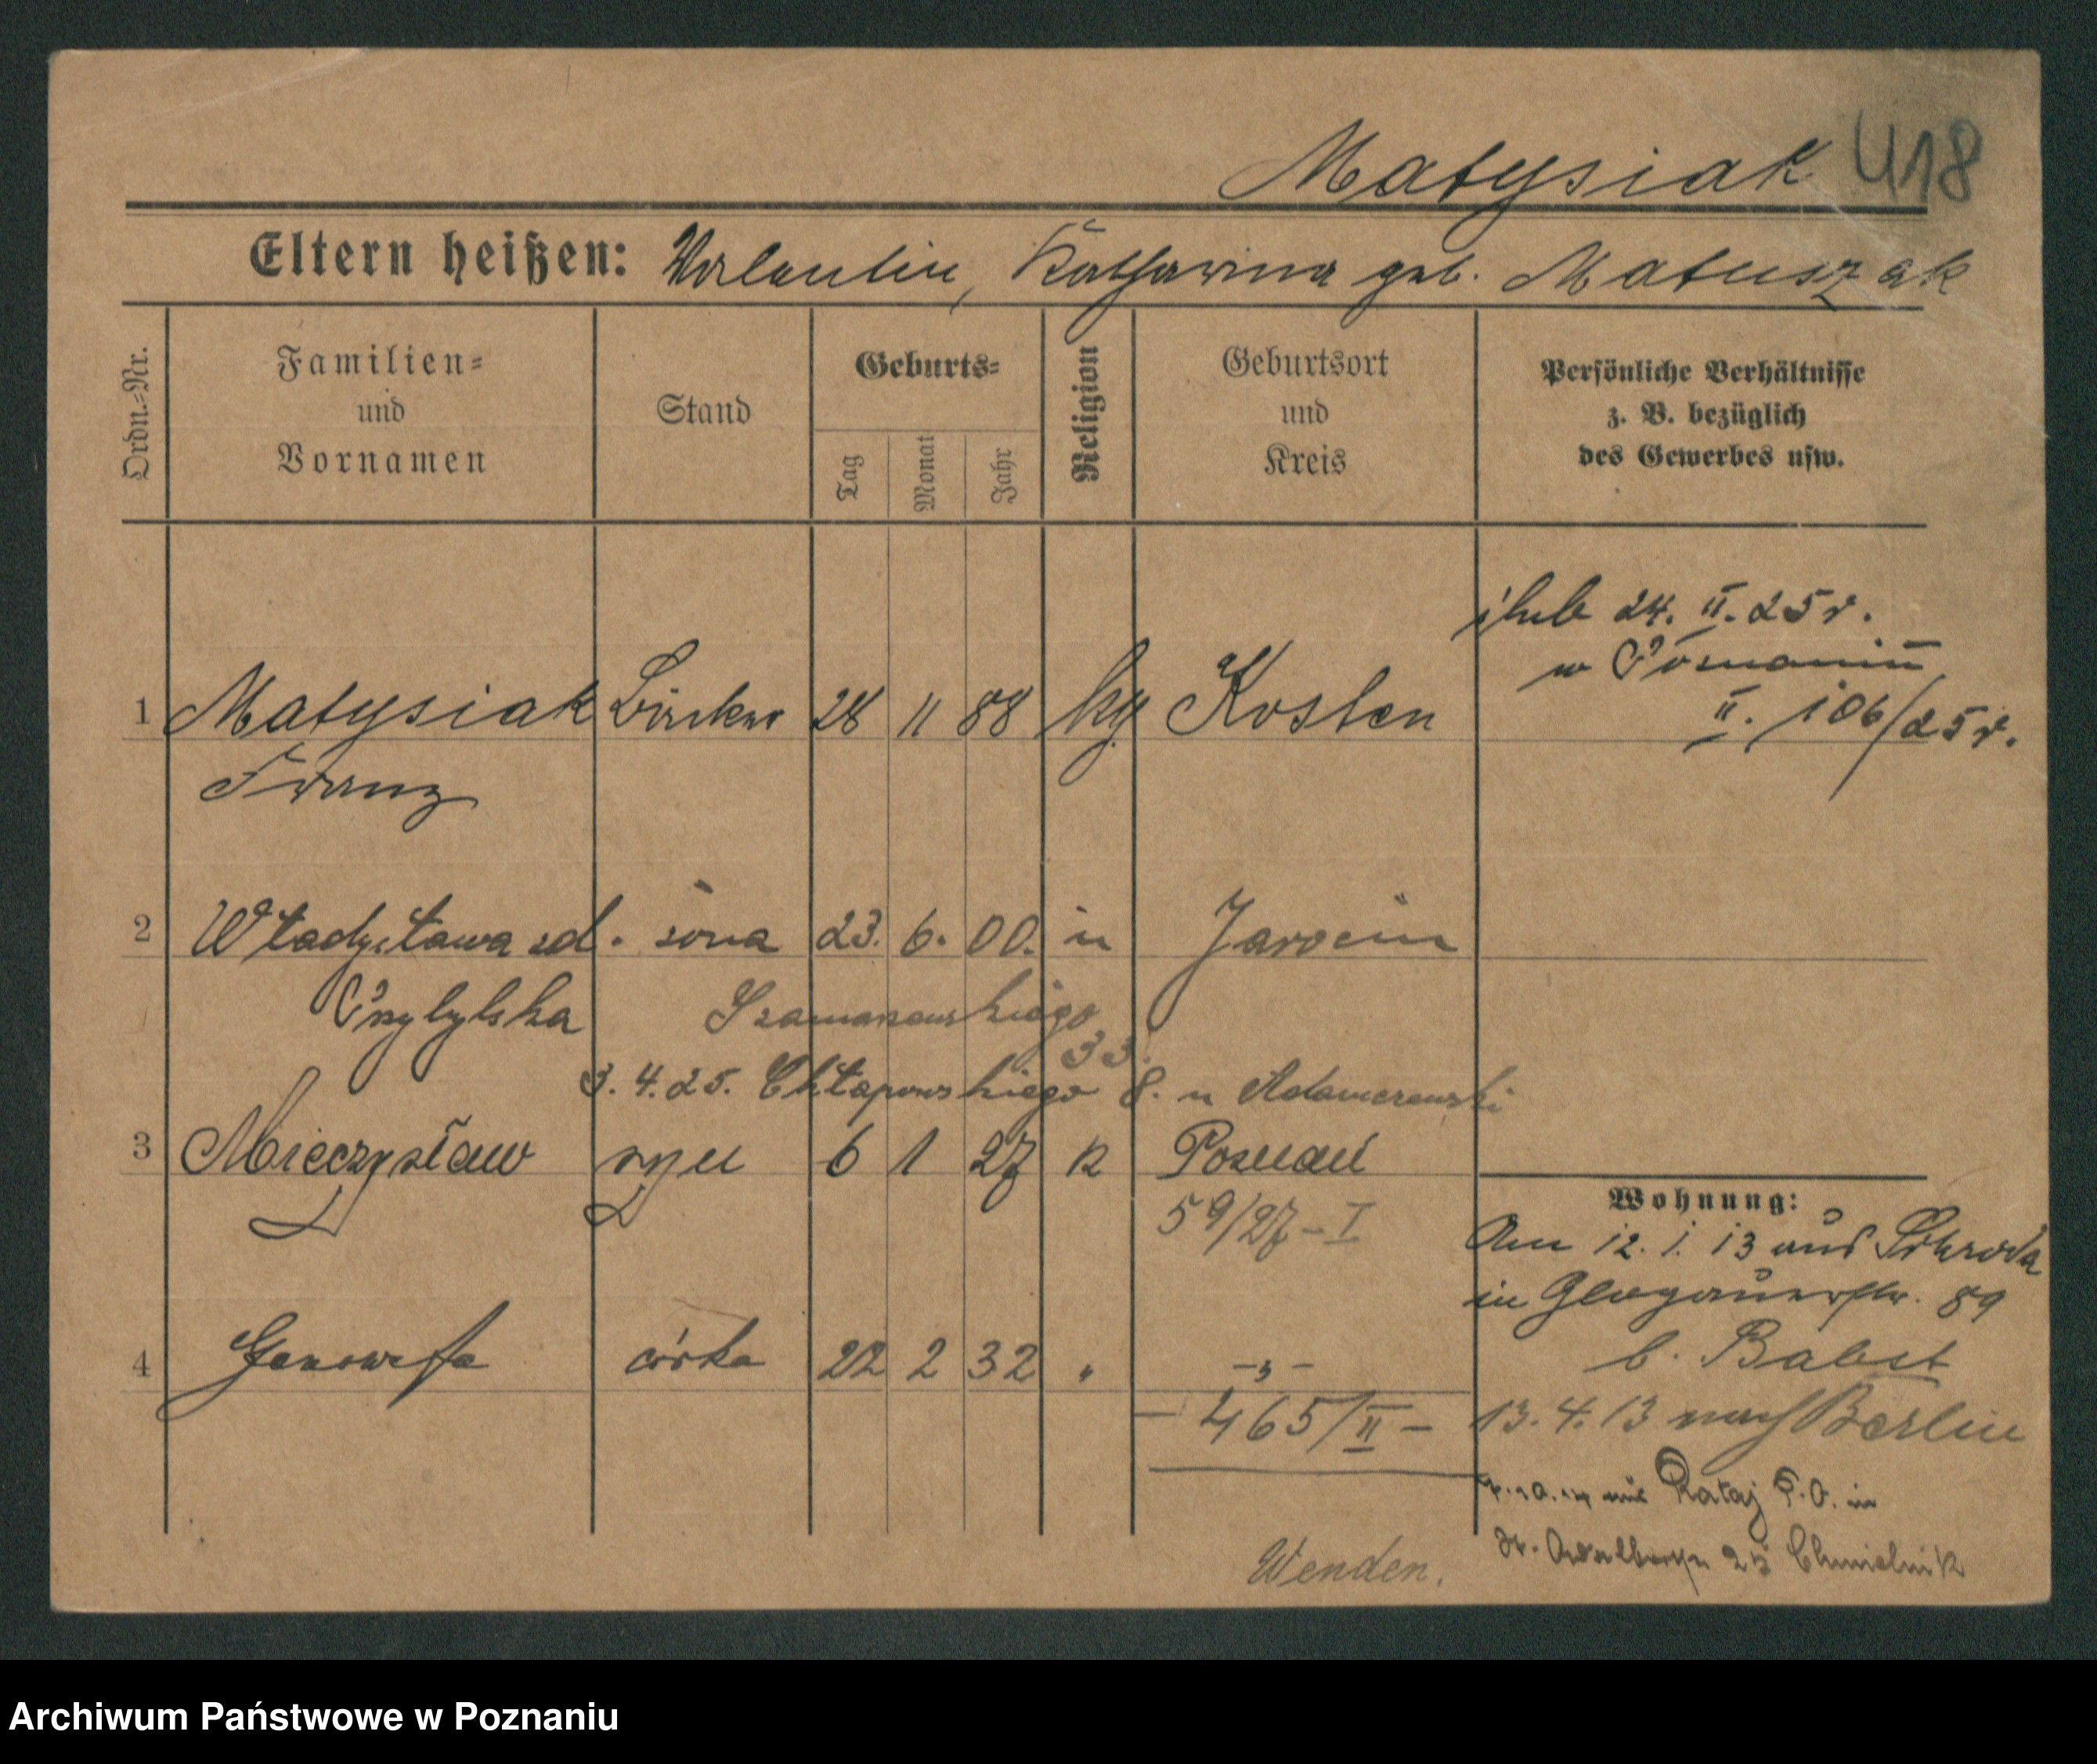 Matysiak 418
Eltern heißen: Valentin, Katharina geb. Matuszak
Ordn.-Nr.
Familien-
und
Vornamen
Stand
Geburts-
Tag
Monat
Jahr
Religion
Geburtsort
und
Kreis
Persönliche Verhältnisse
z. B. bezüglich
des Gewerbes usw.
ślub 24. II. 25 r.
w Poznaniu
II. 106/25 r.
1 Matysiak Bäcker 28 11 88 kg Kosten
Franz
2 Władysława zd. żona 23. 6. 00. " Jarocin
Przybylska Szamarzewskiego 33.
3. 4. 25. Chłapowskiego 8. u Adamczewski
3 Mieczysław syn 6 1 27 k Poznań
59/27 - I
Wohnung:
Am 12. 1. 13 aus Schroda
in Glogauerstr. 89
b. Babst
4 Genowefa córka 22 2 32 " - " -
- 465/II -
13. 4. 13 nach Berlin
aus Rataj P.O. in
St. Adalbertstr 25 Chmielnik
Wenden.
Archiwum Państwowe w Poznaniu